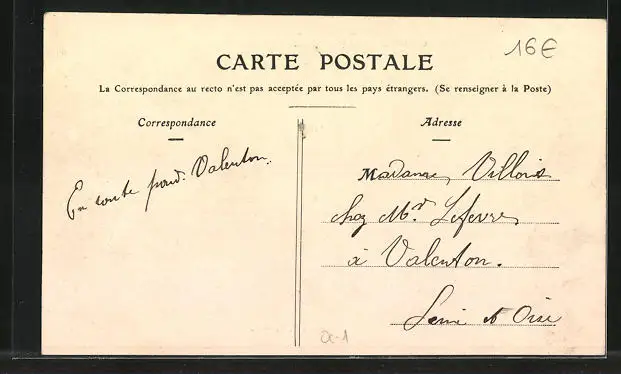 16€
CARTE POSTALE
La Correspondance au recto n'est pas acceptée par tous les pays étrangers. (Se renseigner à la Poste)
Correspondance
En route pour Valenton.
Adresse
Madame Villois
chez Mr Lefevre
à Valenton.
Seine et Oise